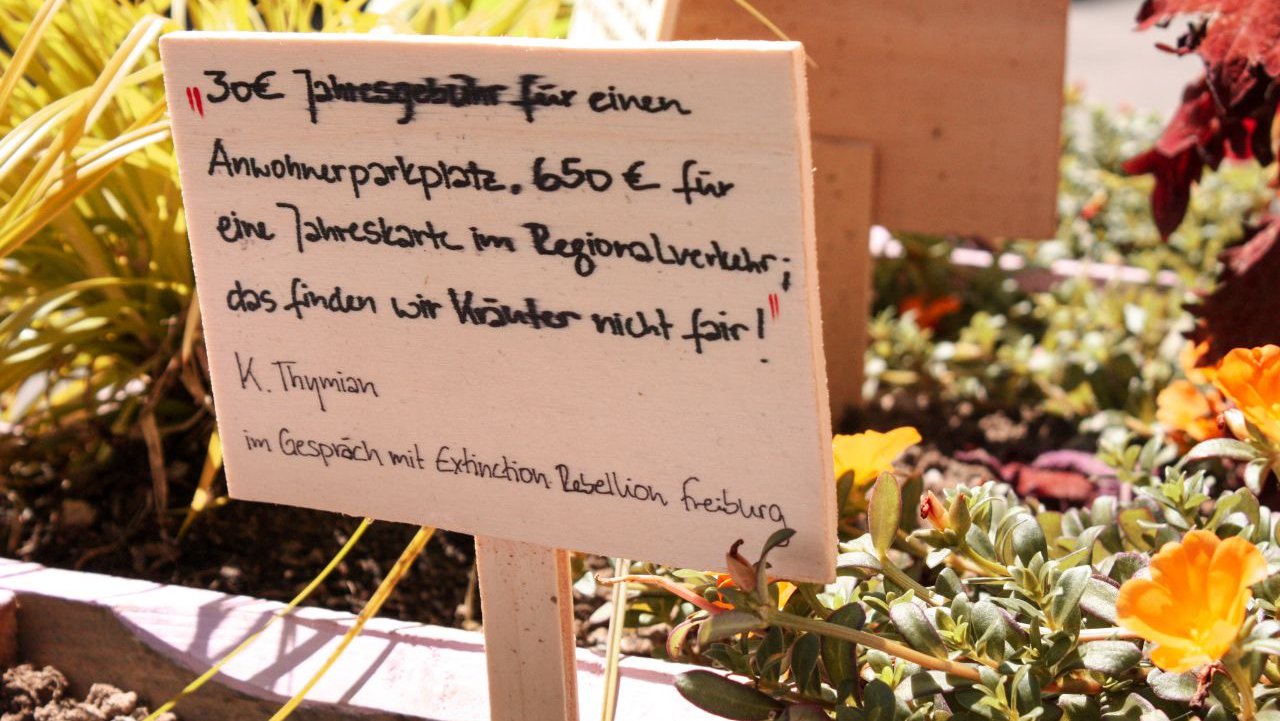 "30€ Jahresgebühr für einen
Anwohnerparkplatz. 650 € für
eine Jahreskarte im Regionalverkehr;
das finden wir Kräuter nicht fair!"
K. Thymian
im Gespräch mit Extinction Rebellion freiburg